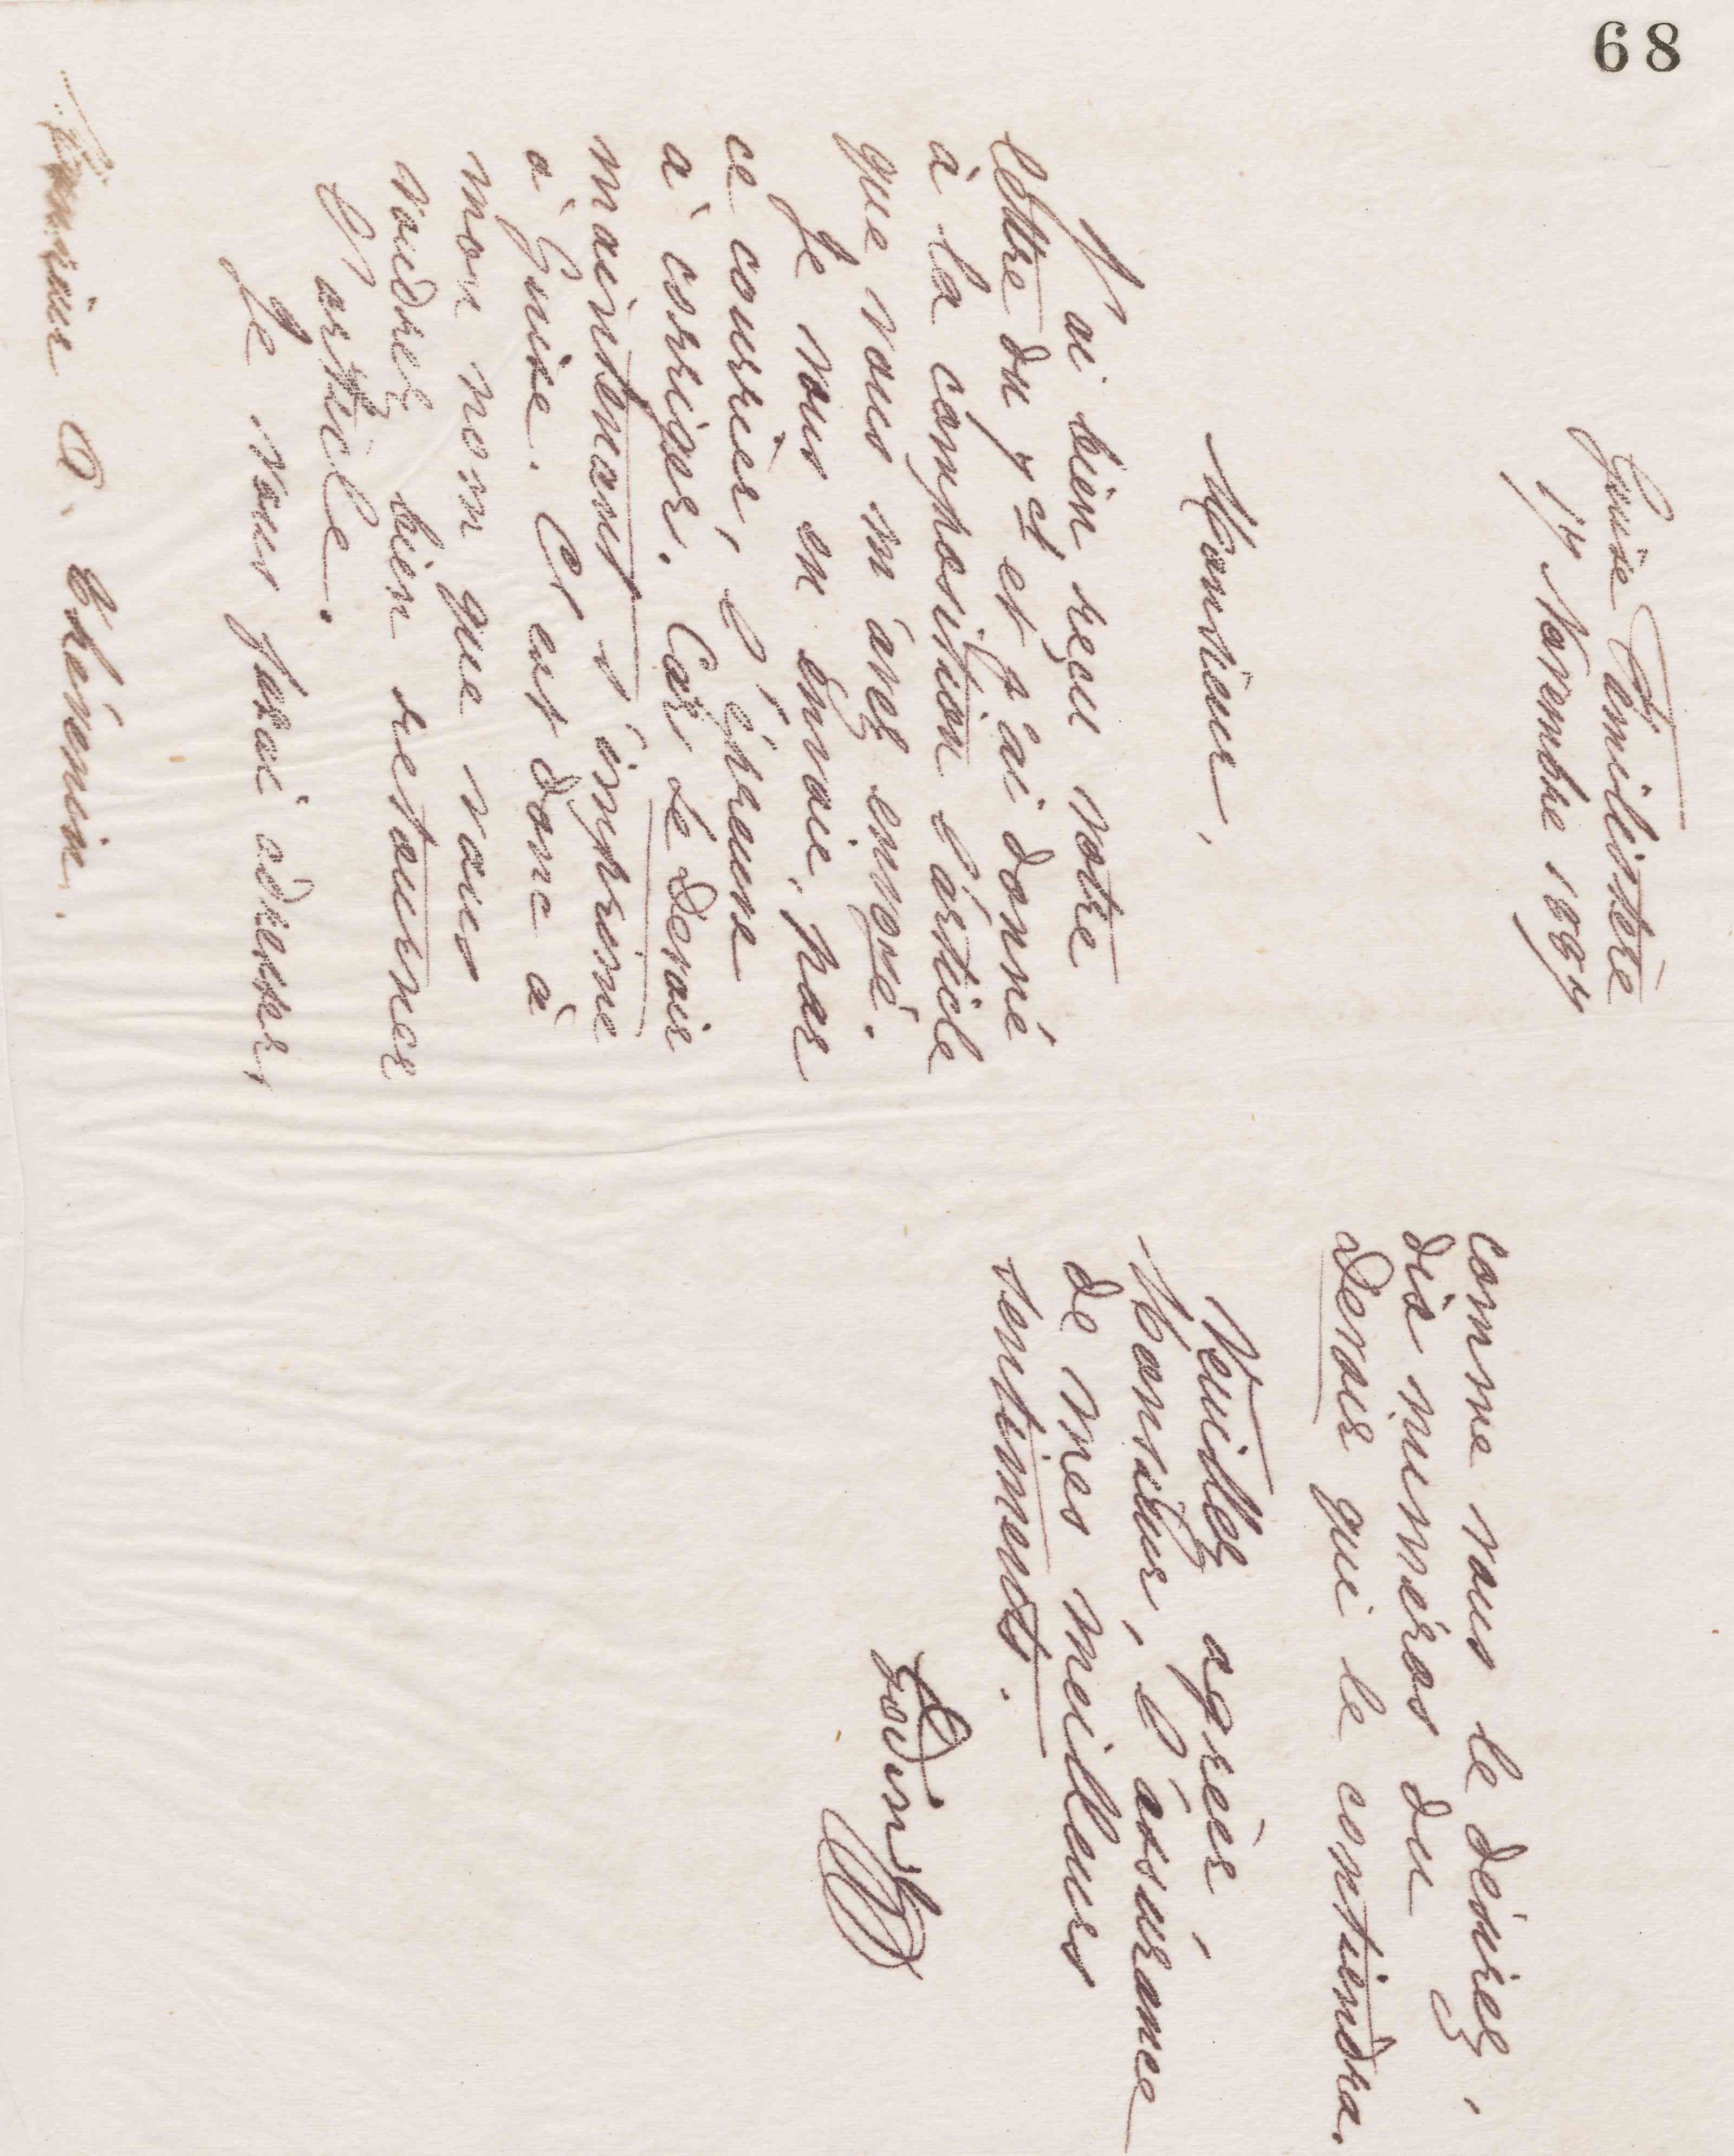 68
Guise Familistère
17 Novembre 1887
Monsieur,
J'ai bien reçu votre
lettre du 7 ct et j'ai donné
à la composition l'article
que vous m'avez envoyé.
Je vous en envoie, par
ce courrier, l'épreuve
à corriger. Car le Devoir
maintenant s'imprime
à Guise. C'est donc à
mon nom que vous
voudrez bien retourner
l'article.
Je vous ferai adresser,
Monsieur A. Chénin.
comme vous le désirez,
dix numéros du
Devoir qui le contiendra.
Veuillez agréer,
Monsieur, l'assurance
de mes meilleurs
sentiments.
Godin